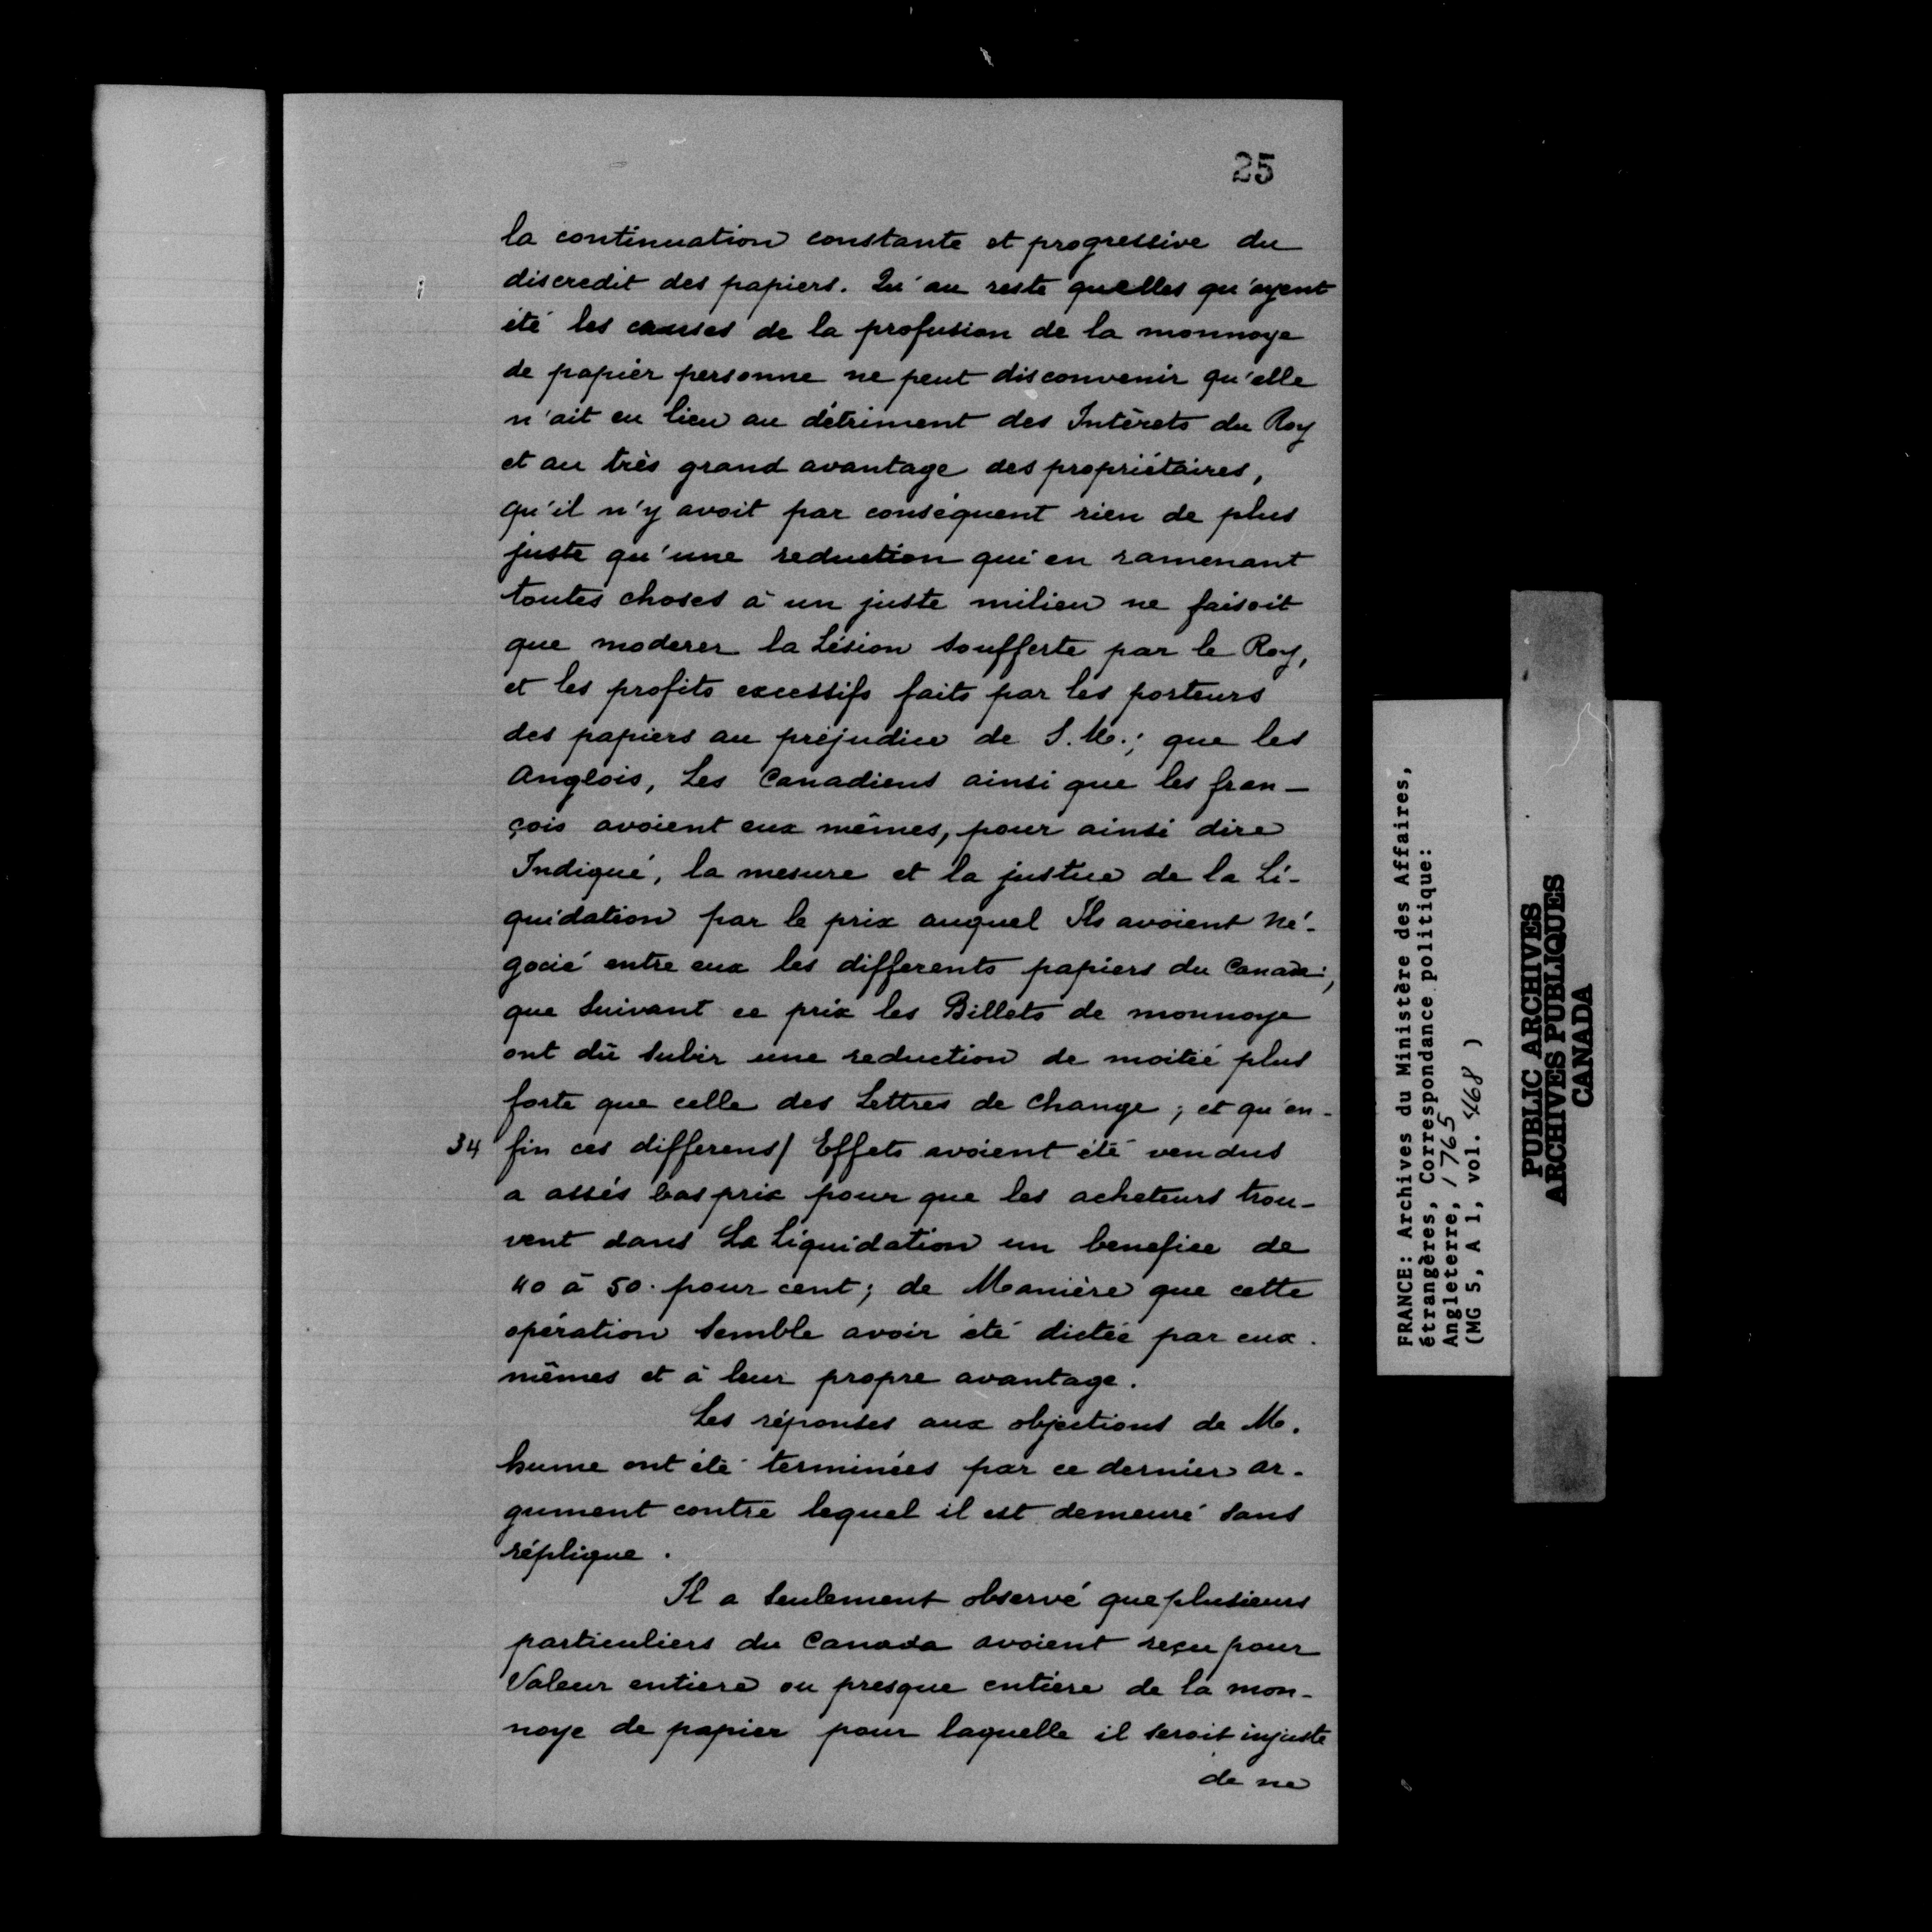 25
la continuation constante et progressive du
discredit des papiers. Qu'au reste quelles qu'ayent
été les causes de la profusion de la monnoye
de papier personne ne peut disconvenir qu'elle
n'ait eu lieu au détriment des Intérets du Roy
et au très grand avantage des propriétaires,
qu'il n'y avoit par conséquent rien de plus
juste qu'une reduction qui en ramenant
toutes choses à un juste milieu ne faisoit
que moderer la Lésion soufferte par le Roy,
et les profits excessifs faits par les porteurs
des papiers au préjudice de S. M.; que les
Anglois, Les Canadiens ainsi que les fran-
çois avoient eux mêmes, pour ainsi dire
Indiqué, la mesure et la justice de la Li-
quidation par le prix auquel Ils avoient Né-
gocié entre eux les differents papiers du Canada;
que suivant ce prix les Billets de monnoye
ont dû subir une reduction de moitié plus
forte que celle des Lettres de change; et qu'en-
34 fin ces differens/ Effets avoient été vendus
a assés bas prix pour que les acheteurs trou-
vent dans La Liquidation un benefice de
40 à 50. pour cent; de Manière que cette
opération semble avoir été dictée par eux.
mêmes et à leur propre avantage.
Les réponses aux objections de M.
hume ont été terminées par ce dernier ar-
gument contre lequel il est demeuré sans
réplique.
Il a seulement observé que plusieurs
particuliers du Canada avoient reçu pour
Valeur entiere ou presque entière de la mon-
noye de papier pour laquelle il seroit injuste
de ne
FRANCE: Archives du Ministère des Affaires,
étrangères, Correspondance politique:
Angleterre, 1765
(MG 5, A 1, vol. 468 )
PUBLIC ARCHIVES
ARCHIVES PUBLIQUES
CANADA